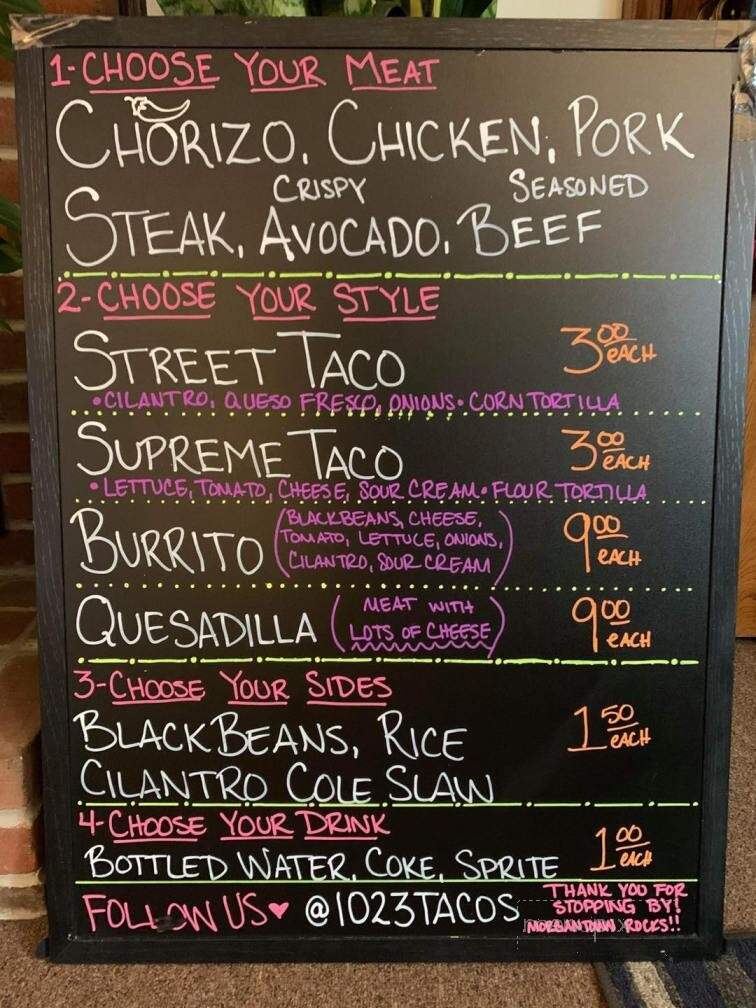 1-CHOOSE YOUR MEAT
CHORIZO, CHICKEN, PORK
CRISPY SEASONED
STEAK, AVOCADO, BEEF
2-CHOOSE YOUR STYLE
STREET TACO 3.00 EACH
•CILANTRO, QUESO FRESCO, ONIONS•CORN TORTILLA
SUPREME TACO 3.00 EACH
•LETTUCE, TOMATO, CHEESE, SOUR CREAM•FLOUR TORTILLA
BURRITO (BLACKBEANS, CHEESE,
TOMATO, LETTUCE, ONIONS,
CILANTRO, SOUR CREAM) 9.00 EACH
QUESADILLA (MEAT WITH
LOTS OF CHEESE) 9.00 EACH
3-CHOOSE YOUR SIDES
BLACK BEANS, RICE 1.50 EACH
CILANTRO COLE SLAW
4-CHOOSE YOUR DRINK
BOTTLED WATER, COKE, SPRITE 1.00 EACH
FOLLOW US♥ @1023TACOS
THANK YOU FOR
STOPPING BY!
MORGANTOWN ROCKS!!